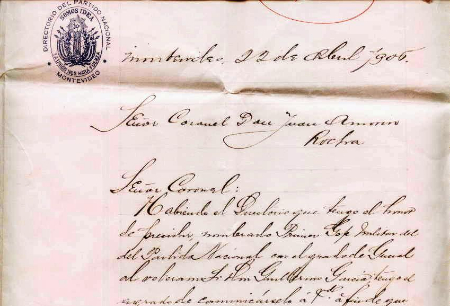 DIRECTORIO DEL PARTIDO NACIONAL
SOMOS IDEA
MONTEVIDEO
Montevideo, 22 de Abril 1906.
Señor Coronel Don Juan
Rocha
Señor Coronel:
Habiendo el Directorio que tengo el honor
de presidir, nombrado Primer
del Partido Nacional con el grado de
al Dn. Guillermo García, tengo el
agrado de comunicárselo a á fin de que